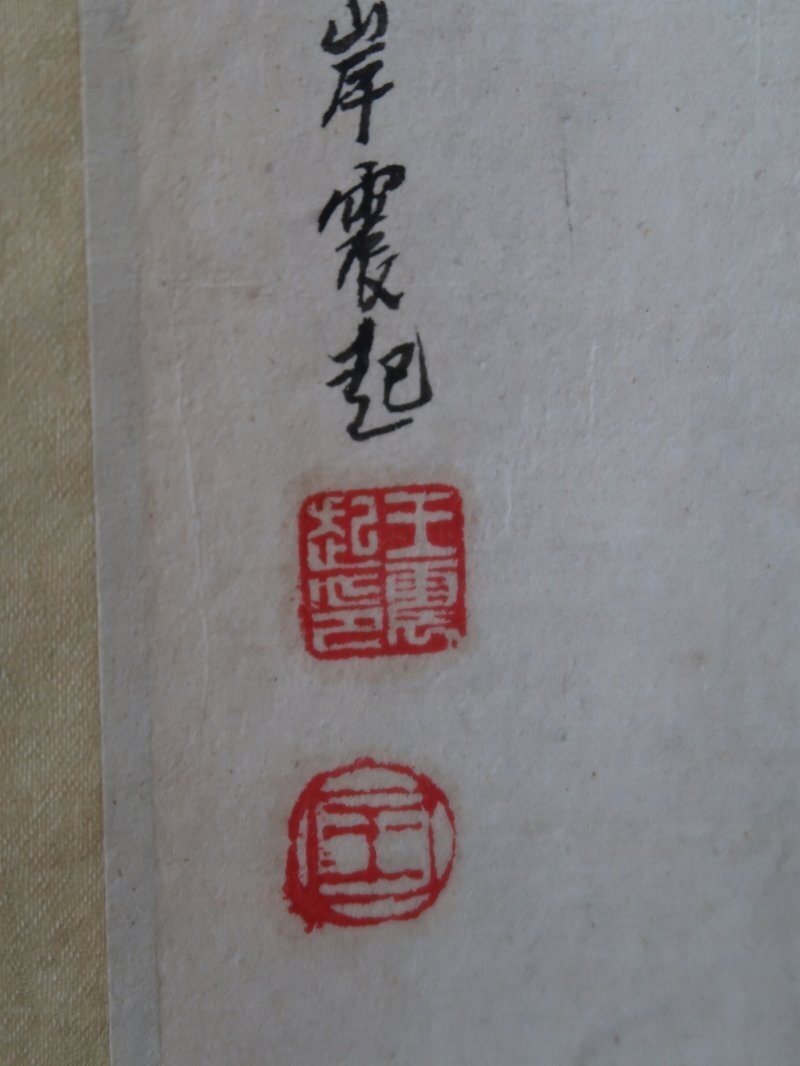 岸震起
王震起印